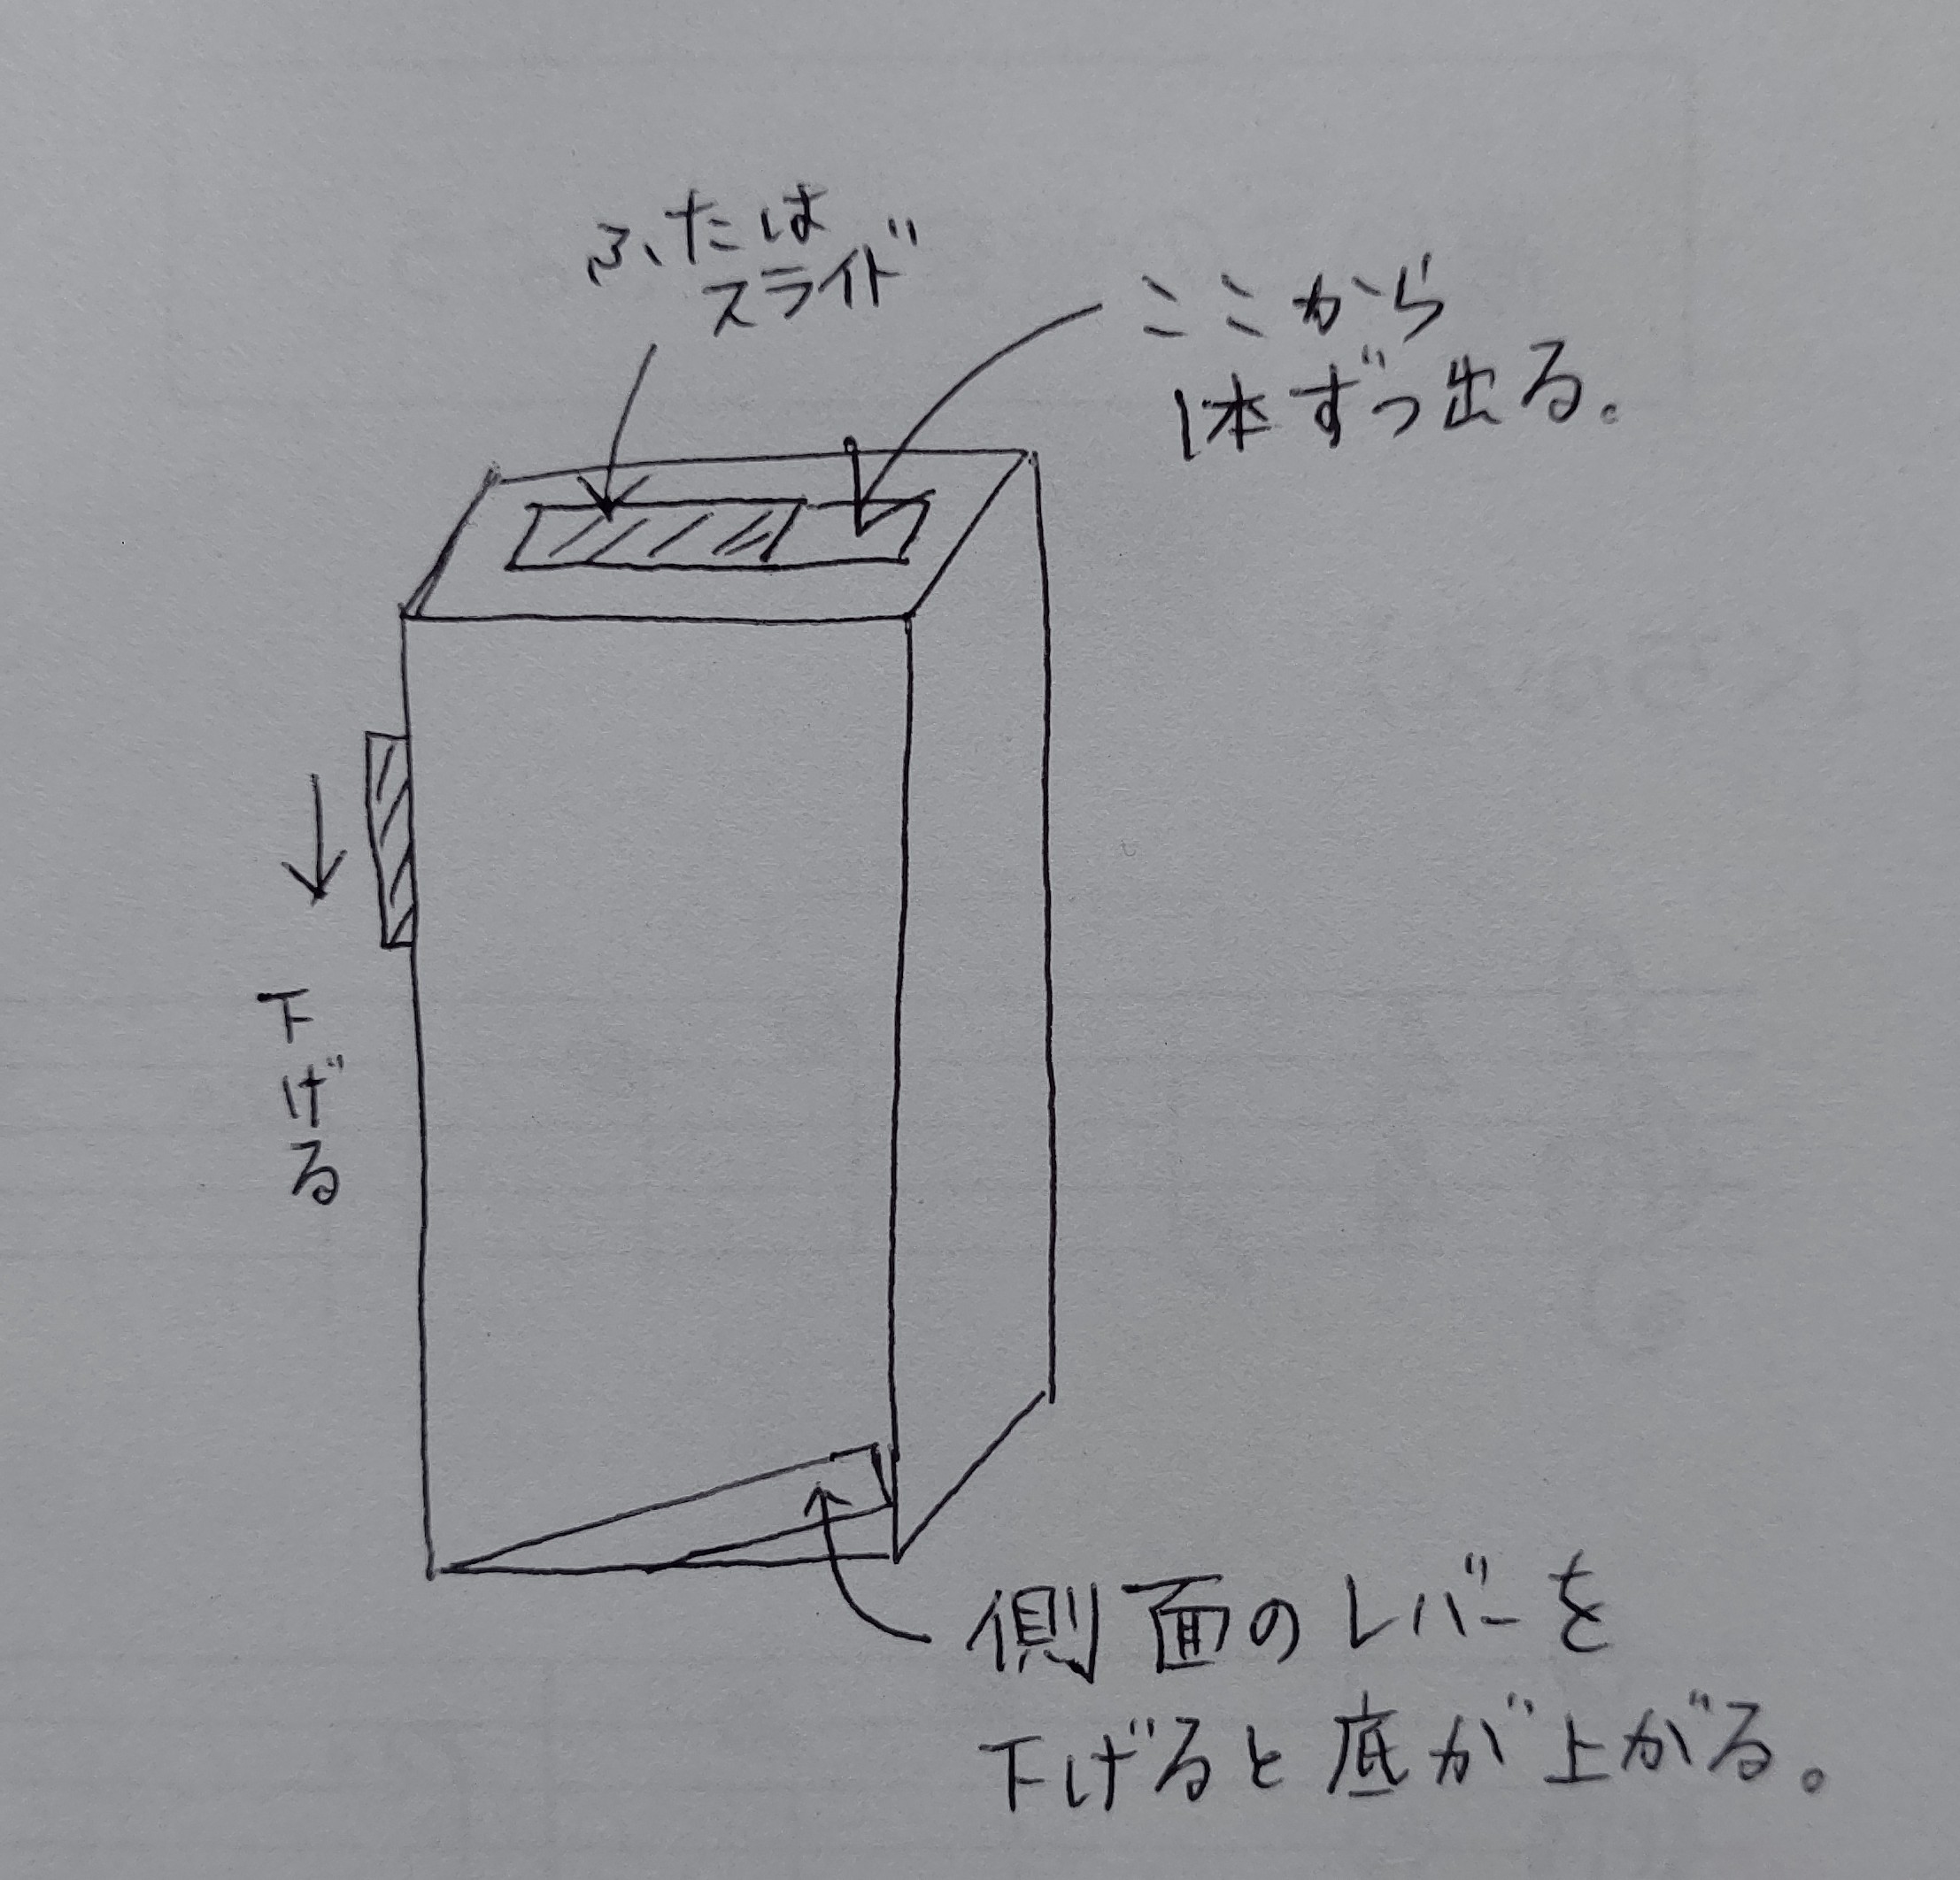 ふたは
スライド
ここから
1本ずつ出る。
下げる
側面のレバーを
下げると底が上がる。